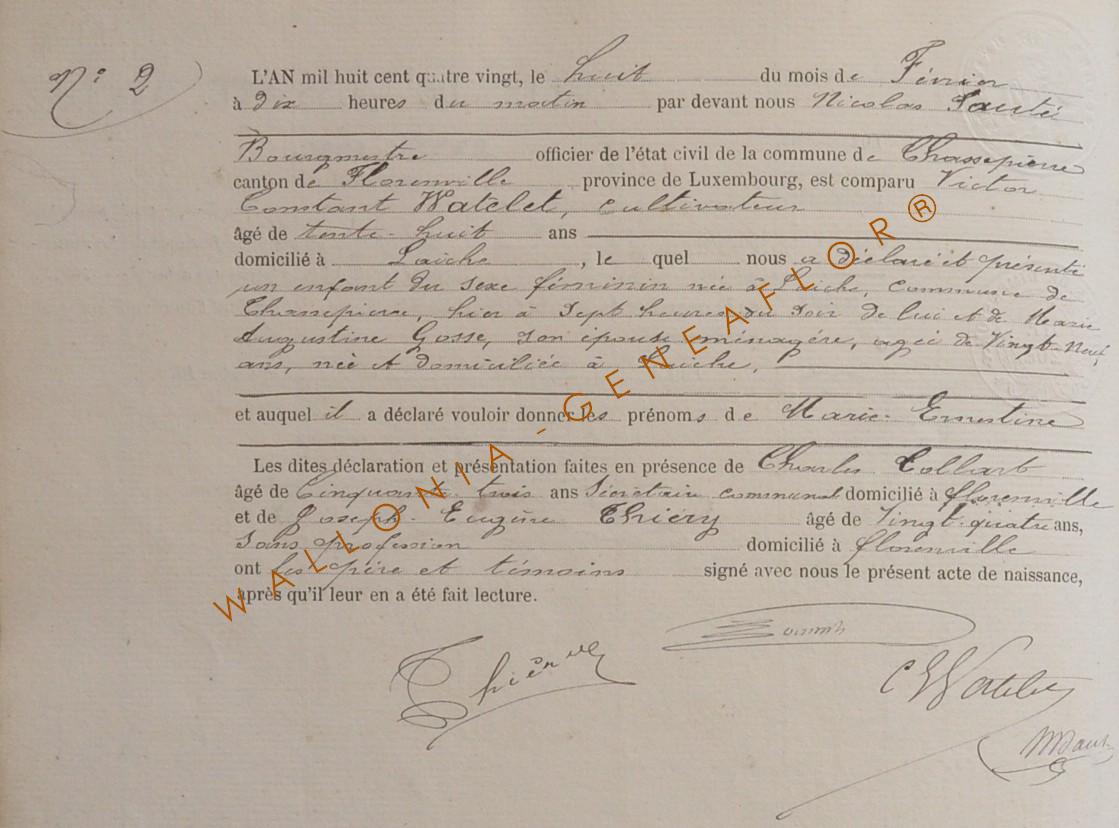 N° 2
L'AN mil huit cent quatre vingt, le huit du mois de Février
à Dix heures du matin par devant nous Nicolas
Bourgmestre officier de l'état civil de la commune de Chassepierre
canton de Florenville province de Luxembourg, est comparu Victor
Constant Watelet, cultivateur
âgé de trente-huit ans
domicilié à Laiche, le quel nous a déclaré et présenté
un enfant du sexe féminin née à Laiche, commune de
Chassepierre, hier à Sept heures du Soir de lui et de Marie
Augustine Gosse, son épouse ménagère, agée de Vingt-Neuf
ans, née et domiciliée à Laiche.
et auquel il a déclaré vouloir donner les prénoms de Marie-Ernestine
Les dites déclaration et présentation faites en présence de Charles Collart
âgé de Cinquante trois ans Sécrétaire communal domicilié à florenville
et de Joseph-Eugène Thiéry âgé de Vingt-quatre ans,
Sans profession domicilié à florenville
ont les père et témoins signé avec nous le présent acte de naissance,
après qu'il leur en a été fait lecture.
WALLONIA-GENEAFLOR®
C Watelet